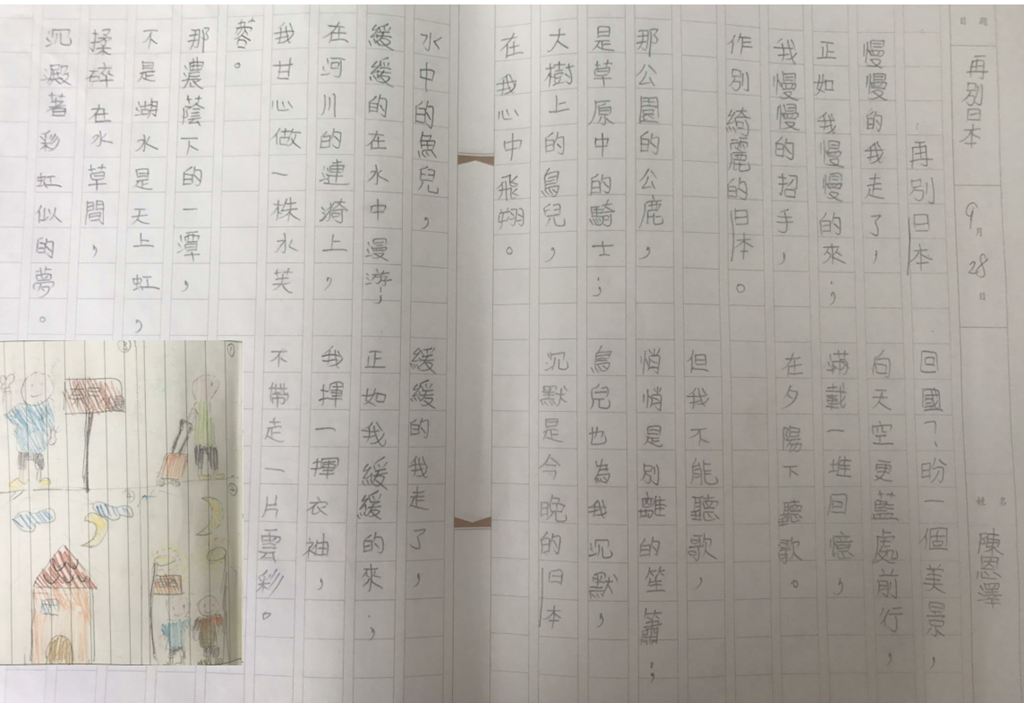 題目
再別日本
9月28日
姓名
陳恩澤
再別日本
慢慢的我走了，
正如我慢慢的來；
我慢慢的招手，
作別綺麗的日本。
那公園的公鹿，
是草原中的騎士；
大樹上的鳥兒，
在我心中飛翔。
水中的魚兒，
緩緩的在水中漫游；
在河川的連漪上，
我甘心做一株水芙
蓉。
那濃蔭下的一潭，
不是湖水是天上虹，
揉碎在水草間，
沉澱著彩虹似的夢。
回國？盼一個美景，
向天空更藍處前行，
滿載一堆回憶，
在夕陽下聽歌。
但我不能聽歌，
悄悄是別離的笙簫；
鳥兒也為我沉默，
沉默是今晚的日本
緩緩的我走了，
正如我緩緩的來；
我揮一揮衣袖，
不帶走一片雲彩。